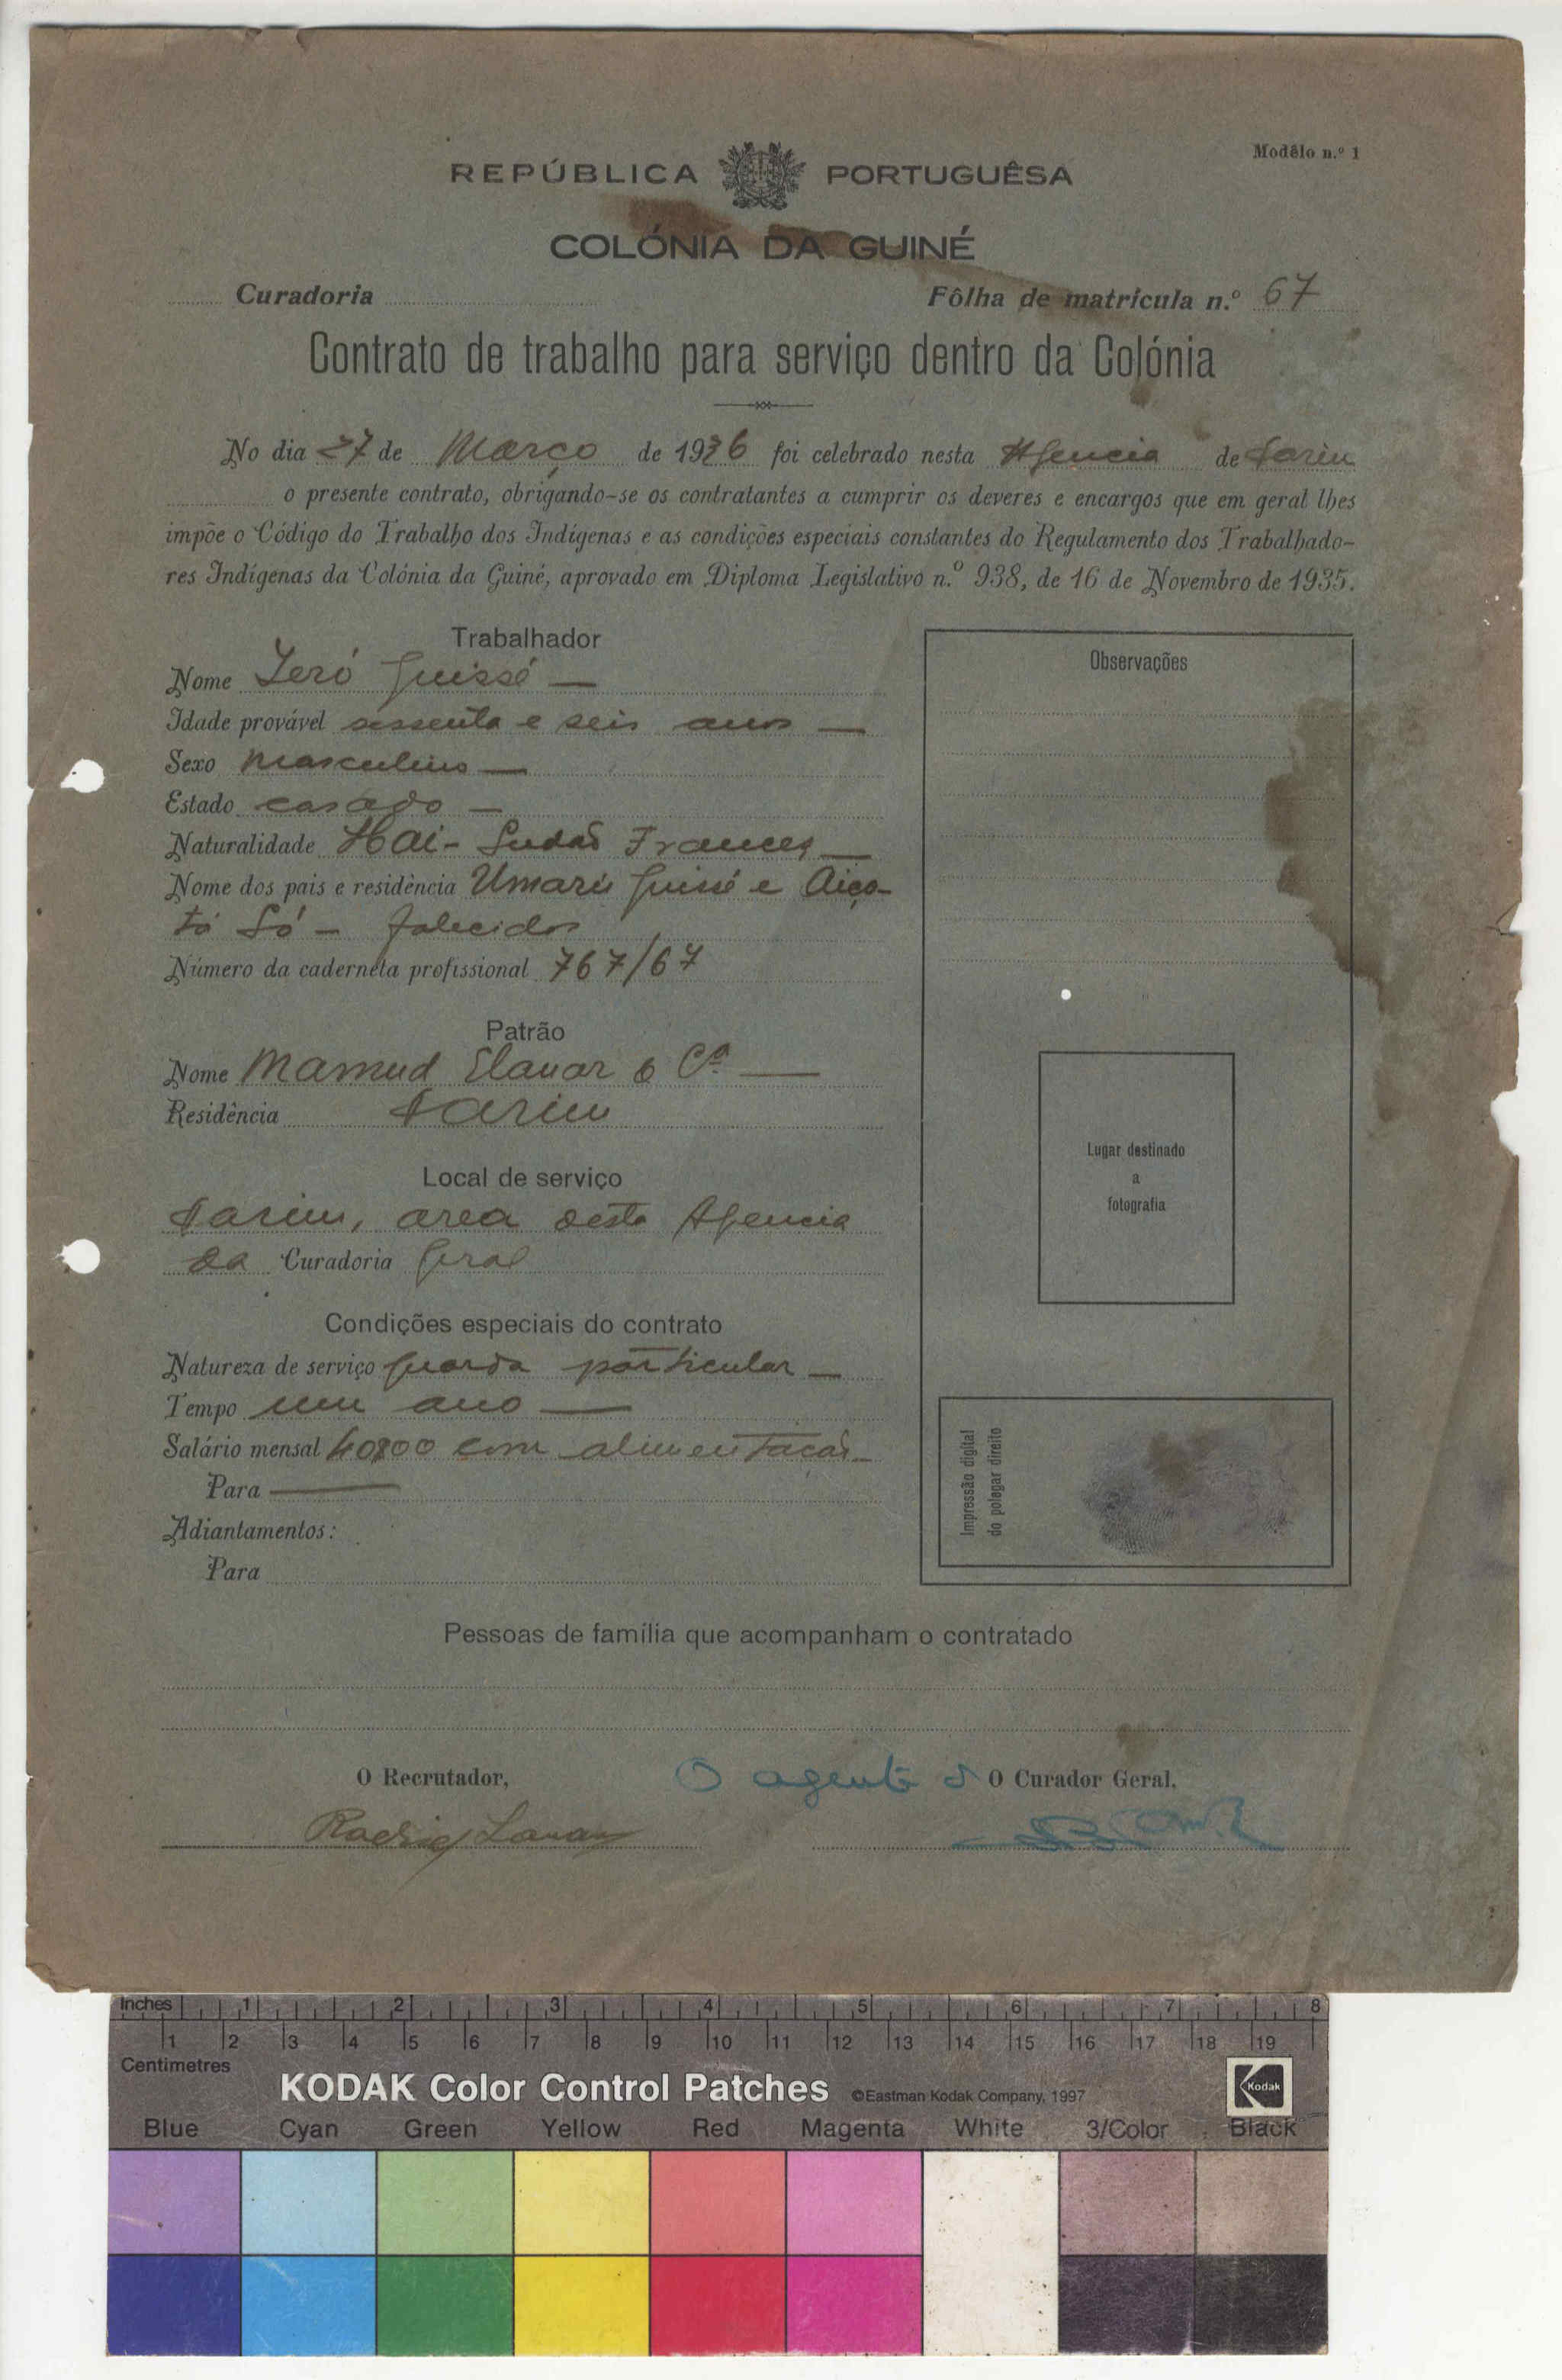 Modêlo n.º 1
REPÚBLICA PORTUGUÊSA
COLÓNIA DA GUINÉ
Curadoria Fôlha de matrícula n.º 67
Contrato de trabalho para serviço dentro da Colónia
No dia 27 de Março de 1936 foi celebrado nesta Agencia de Farim
o presente contrato, obrigando-se os contratantes a cumprir os deveres e encargos que em geral lhes
impõe o Código do Trabalho dos Indígenas e as condições especiais constantes do Regulamento dos Trabalhado-
res Indígenas da Colónia da Guiné, aprovado em Diploma Legislativo n.º 938, de 16 de Novembro de 1935.
Trabalhador
Nome Ieró Guissé
Idade provável sessenta e seis anos
Sexo Masculino
Estado casado
Naturalidade Hai - Sudão Frances
Nome dos pais e residência Umarú Guissé e Aiça-
tá Só - falecidos
Número da caderneta profissional 767/67
Patrão
Nome Mamud Elauar & Cª
Residência Farim
Local de serviço
Farim, area desta Agencia
da Curadoria Geral
Condições especiais do contrato
Natureza de serviço Guarda particular
Tempo um ano
Salário mensal 40$00 com alimentação
Para
Adiantamentos:
Para
Observações
Lugar destinado
a
fotografia
Impressão digital
do polegar direito
Pessoas de família que acompanham o contratado
O Recrutador, O agente d O Curador Geral,
Inches 1 2 3 4 5 6 7 8
1 2 3 4 5 6 7 8 9 10 11 12 13 14 15 16 17 18 19
Centimetres
KODAK Color Control Patches ©Eastman Kodak Company, 1997 Kodak
Blue Cyan Green Yellow Red Magenta White 3/Color Black